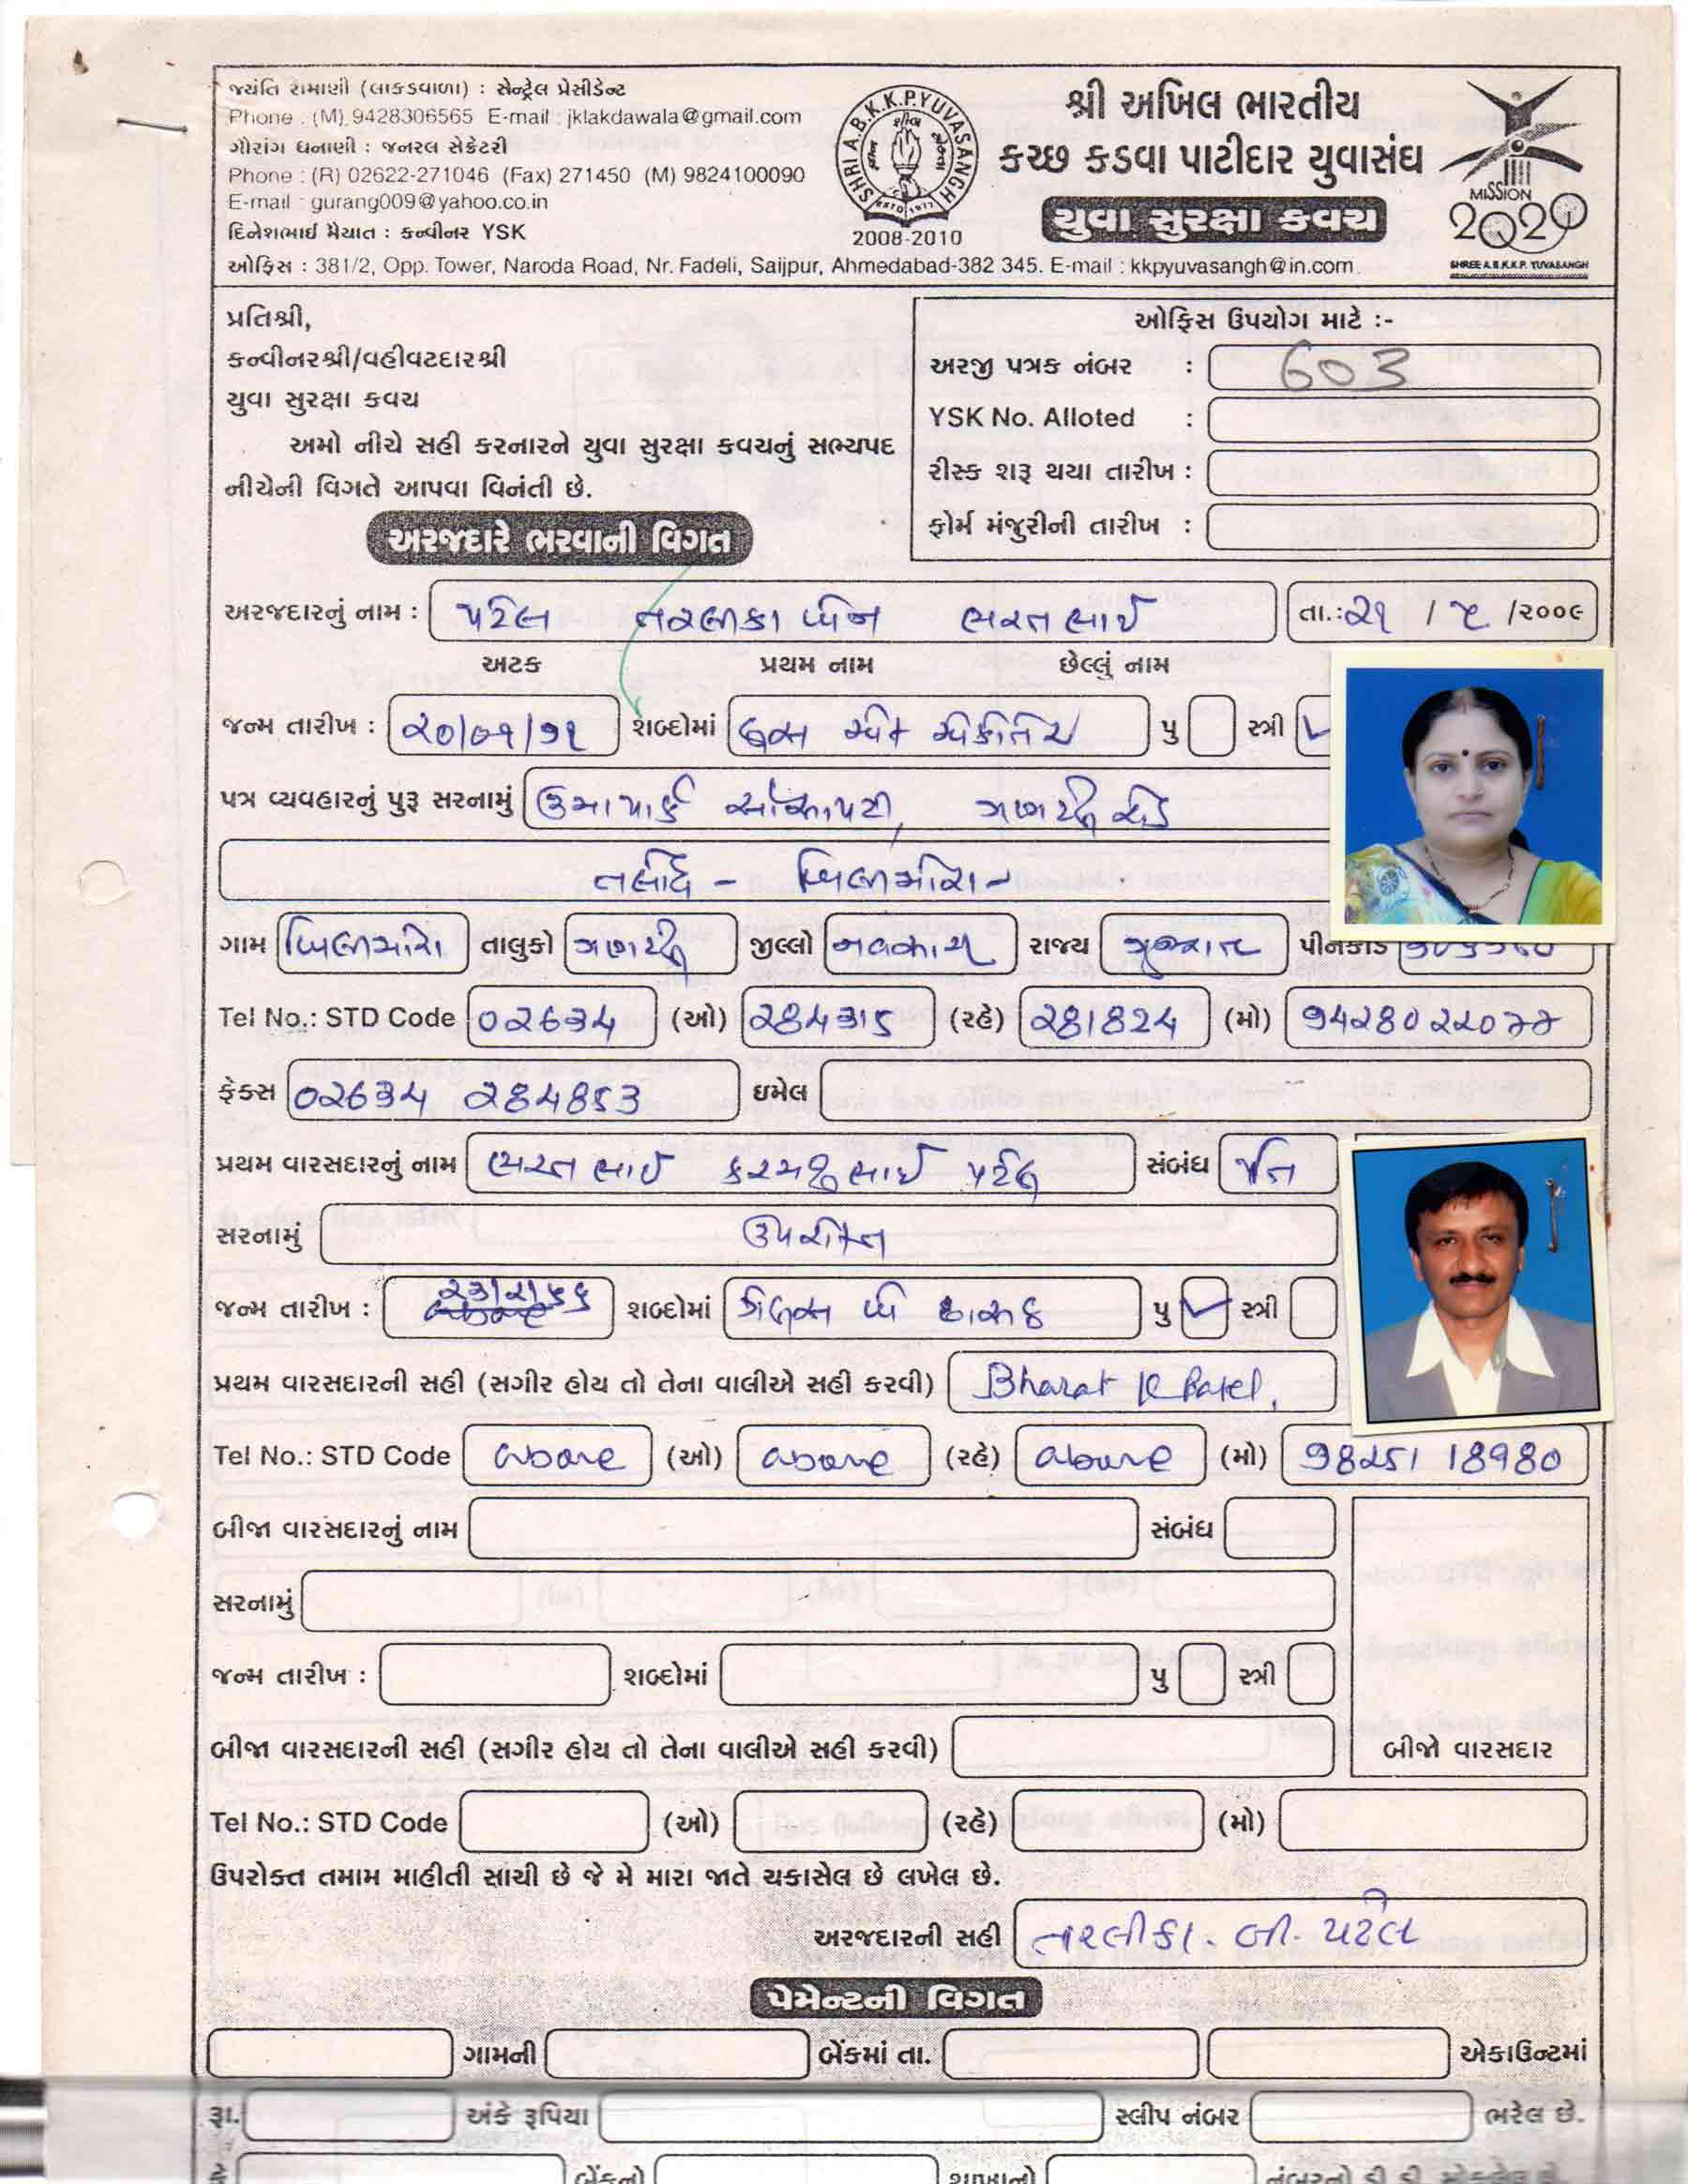 જયંતિ રામાણી (લાકડાવાળા) : સેન્ટ્રલ પ્રેસીડેન્ટ
Phone : (M). 9428306565 E-mail : jklakdawala@gmail.com
ગૌરાંગ ધનાણી : જનરલ સેક્રેટરી
Phone : (R) 02622-271046 (Fax) 271450 (M) 9824100090
E-mail : gurang009@yahoo.co.in
દિનેશભાઈ મૈયાત : કન્વીનર YSK
SHRI A.B.K.K.P. YUVASANGH
ESTD 1977
2008-2010
શ્રી અખિલ ભારતીય
કચ્છ કડવા પાટીદાર યુવાસંઘ
યુવા સુરક્ષા કવચ
MISSION
2020
SHREE A.B.K.K.P. YUVASANGH
ઓફિસ : 381/2, Opp. Tower, Naroda Road, Nr. Fadeli, Saijpur, Ahmedabad-382 345. E-mail : kkpyuvasangh@in.com
પ્રતિશ્રી,
કન્વીનરશ્રી/વહીવટદારશ્રી
યુવા સુરક્ષા કવચ
અમો નીચે સહી કરનારને યુવા સુરક્ષા કવચનું સભ્યપદ
નીચેની વિગતે આપવા વિનંતી છે.
ઓફિસ ઉપયોગ માટે :-
અરજી પત્રક નંબર : 603
YSK No. Alloted :
રીસ્ક શરૂ થયા તારીખ :
ફોર્મ મંજુરીની તારીખ :
અરજદારે ભરવાની વિગત
અરજદારનું નામ : પટેલ તરલીકા બેન ભરતભાઈ તા.: ૨૧ / ૫ /૨૦૦૯
અટક પ્રથમ નામ છેલ્લું નામ
જન્મ તારીખ : ૨૦/૦૧/૭૧ શબ્દોમાં પુ સ્ત્રી ✓
પત્ર વ્યવહારનું પુરૂ સરનામું ઉમાપાર્ક સોસાયટી, ગણદેવી રોડ
બિલીમોરા
ગામ બિલીમોરા તાલુકો ગણદેવી જીલ્લો નવસારી રાજ્ય ગુજરાત પીનકોડ
Tel No.: STD Code 02634 (ઓ) 284315 (રહે) 281824 (મો) 9428022077
ફેક્સ 02634 284853 ઇમેલ
પ્રથમ વારસદારનું નામ ભરતભાઈ કરમશીભાઈ પટેલ સંબંધ પતિ
સરનામું ઉપરોક્ત
જન્મ તારીખ : ૨૩/૨/૬૬ શબ્દોમાં પુ ✓ સ્ત્રી
પ્રથમ વારસદારની સહી (સગીર હોય તો તેના વાલીએ સહી કરવી) Bharat K Patel.
Tel No.: STD Code above (ઓ) above (રહે) above (મો) 98251 18980
બીજા વારસદારનું નામ સંબંધ
સરનામું
જન્મ તારીખ : શબ્દોમાં પુ સ્ત્રી
બીજા વારસદારની સહી (સગીર હોય તો તેના વાલીએ સહી કરવી) બીજો વારસદાર
Tel No.: STD Code (ઓ) (રહે) (મો)
ઉપરોક્ત તમામ માહીતી સાચી છે જે મે મારા જાતે ચકાસેલ છે લખેલ છે.
અરજદારની સહી તરલીકા. બી. પટેલ
પેમેન્ટની વિગત
ગામની બેંકમાં તા. એકાઉન્ટમાં
રૂા. અંકે રૂપિયા સ્લીપ નંબર ભરેલ છે.